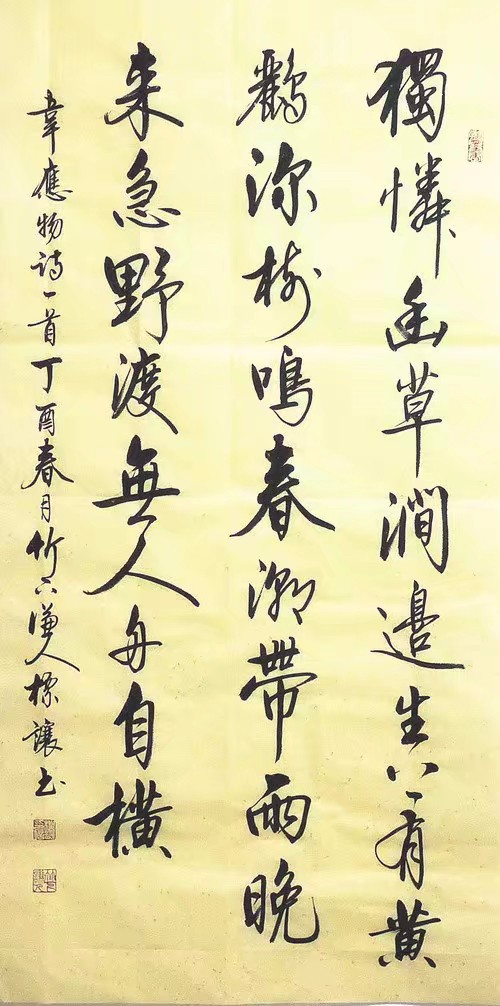 獨憐幽草澗邊生上有黄
鸝深樹鳴春潮帶雨晚
来急野渡無人舟自橫
韋應物诗一首丁酉春月竹下谦人標讓书